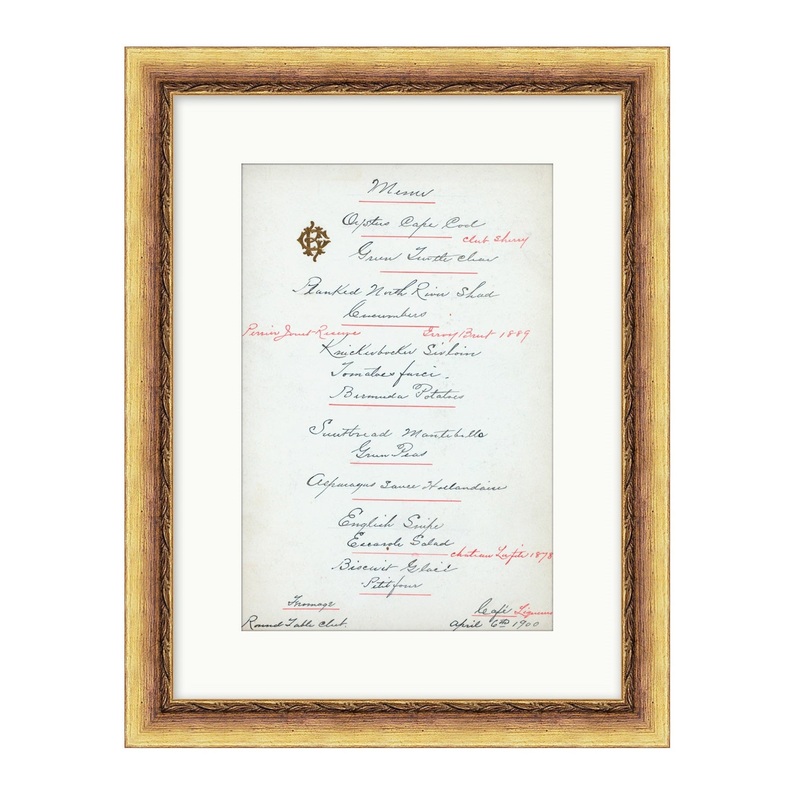 Menu
Oysters Cape Cod
Club Sherry
Green Turtle Clear
Planked North River Shad
Cucumbers
Perrier Jouet Reserve Erroy Brut 1889
Knickerbocker Sirloin
Tomatoes farci.
Bermuda Potatoes
Sweetbread Montebello
Green Peas
Asparagus Sauce Hollandaise
English Snipe
Escarole Salad
Chateau Lafite 1878
Biscuit Glacé
Petit four
Fromage
Café Liqueurs
Round Table Club.
April 6th 1900